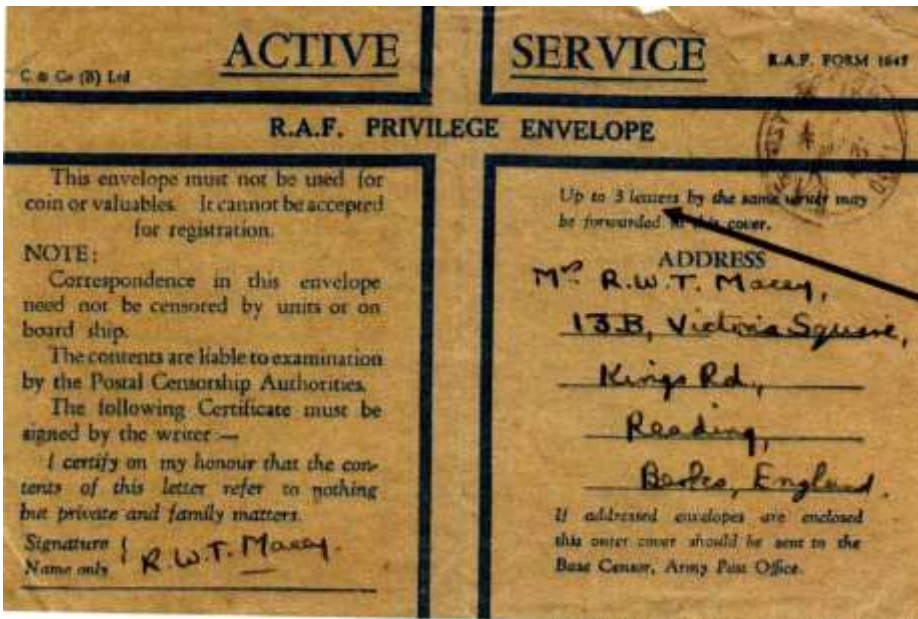 ACTIVE SERVICE
C. & Co (B) Ltd
R.A.F. FORM 1647
R.A.F. PRIVILEGE ENVELOPE
This envelope must not be used for
coin or valuables. It cannot be accepted
for registration.
NOTE:
Correspondence in this envelope
need not be censored by units or on
board ship.
The contents are liable to examination
by the Postal Censorship Authorities.
The following Certificate must be
signed by the writer:—
I certify on my honour that the con-
tents of this letter refer to nothing
but private and family matters.
Signature }
Name only
R.W.T. Macey.
Up to 3 letters by the same writer may
be forwarded in this cover.
ADDRESS
Mrs R.W.T. Macey,
13B, Victoria Square,
Kings Rd.,
Reading,
Berks, England.
If addressed envelopes are enclosed
this outer cover should be sent to the
Base Censor, Army Post Office.